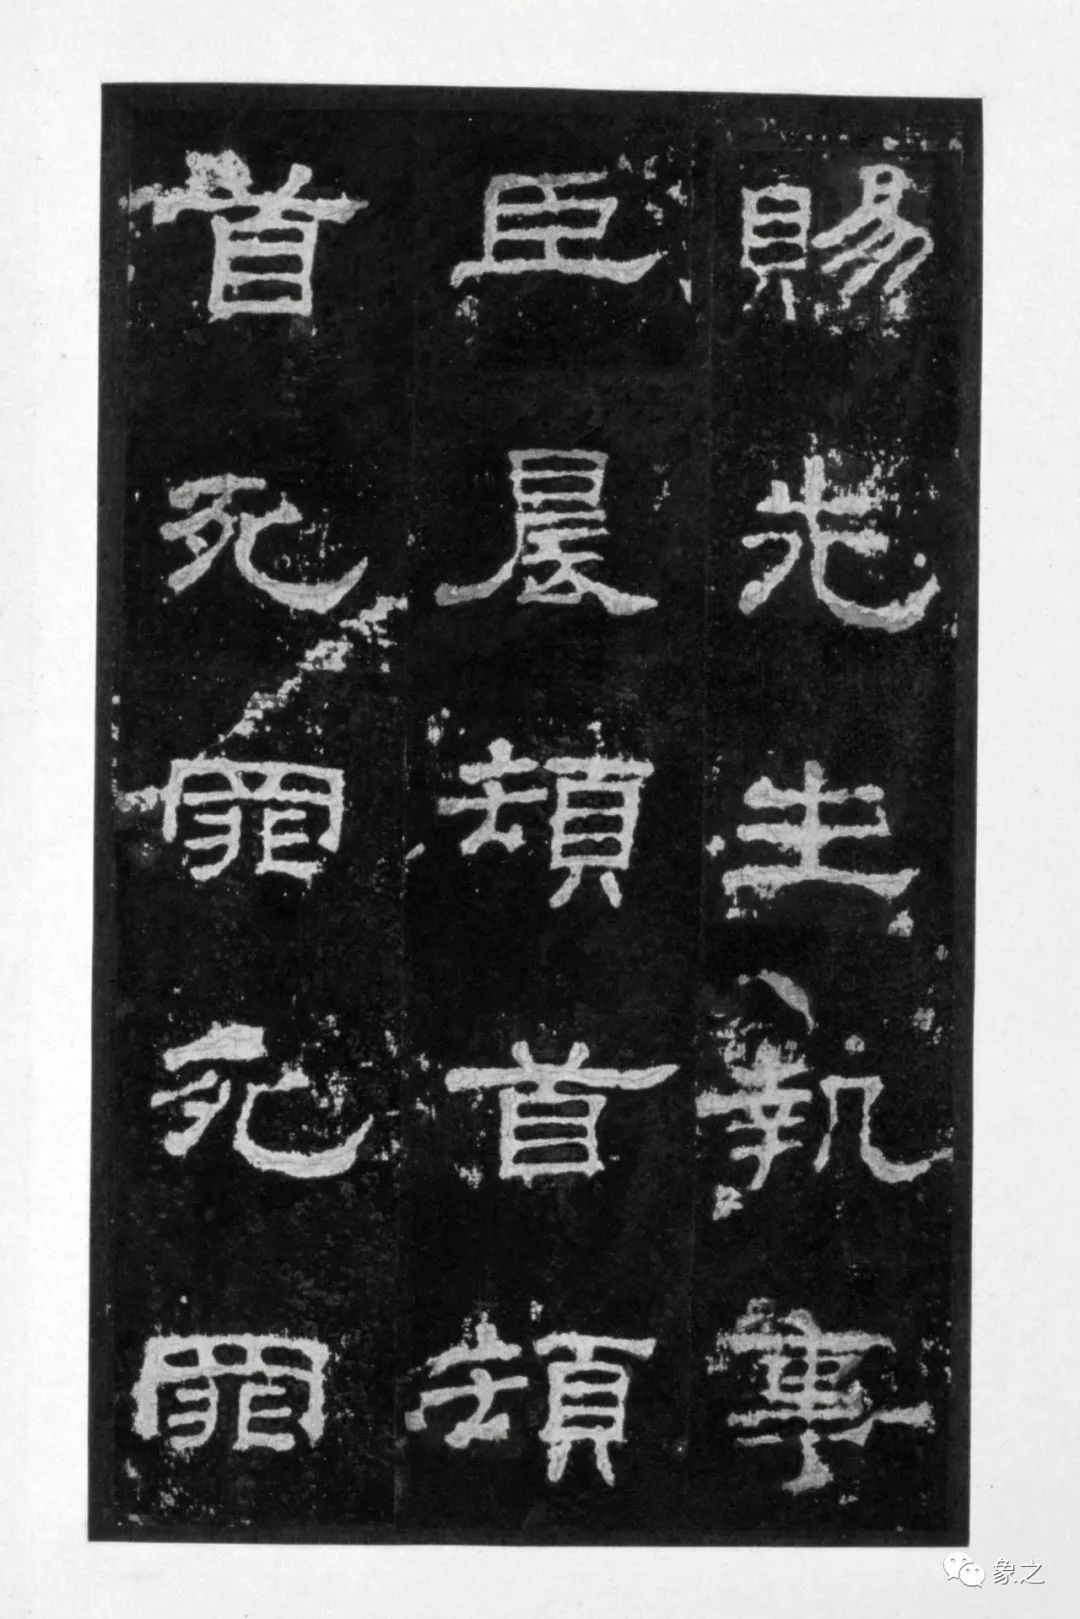 賜先生執事
臣晨頓首頓
首死罪死罪
象之